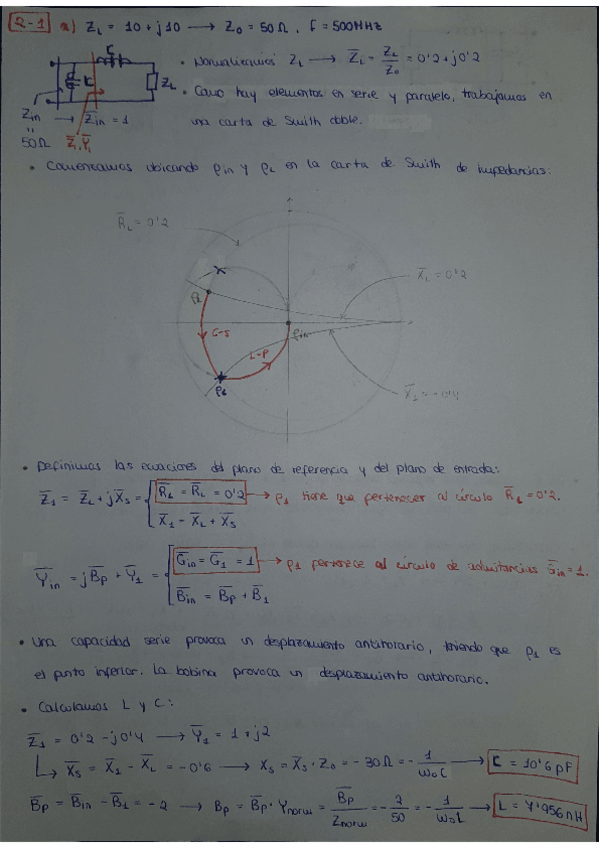 2-1 a) ZL = 10 + j10 → Z0 = 50 Ω, f = 500MHz
C
L C ZL
• Normalizamos ZL → Z̄L = ZL/Z0 = 0'2 + j0'2
Zin → Z̄in = 1
• Como hay elementos en serie y paralelo, trabajamos en
una carta de Smith doble.
50Ω Z̄1, Ȳ1
• Comenzamos ubicando ρin y ρL en la carta de Smith de impedancias:
R̄L = 0'2
X̄L = 0'2
ρL
C-S
ρin
L-P
ρ1
X̄1 = -0'4
• Definimos las ecuaciones del plano de referencia y del plano de entrada:
Z̄1 = Z̄L + jX̄s = R̄1 = R̄L = 0'2 → ρ1 tiene que pertenecer al círculo R̄L = 0'2.
X̄1 = X̄L + X̄s
Ȳin = jB̄p + Ȳ1 = Ḡin = Ḡ1 = 1 → ρ1 pertenece al círculo de admitancias Ḡin = 1.
B̄in = B̄p + B̄1
• Una capacidad serie provoca un desplazamiento antihorario, teniendo que ρ1 es
el punto inferior. La bobina provoca un desplazamiento antihorario.
• Calculamos L y C:
Z̄1 = 0'2 - j0'4 → Ȳ1 = 1 + j2
X̄s = X̄1 - X̄L = -0'6 → Xs = X̄s · Z0 = -30Ω = -1/ω0C → C = 10'6 pF
B̄p = B̄in - B̄1 = -2 → Bp = B̄p · Ynorm = B̄p/Znorm = -2/50 = -1/ω0L → L = 7'956 nH